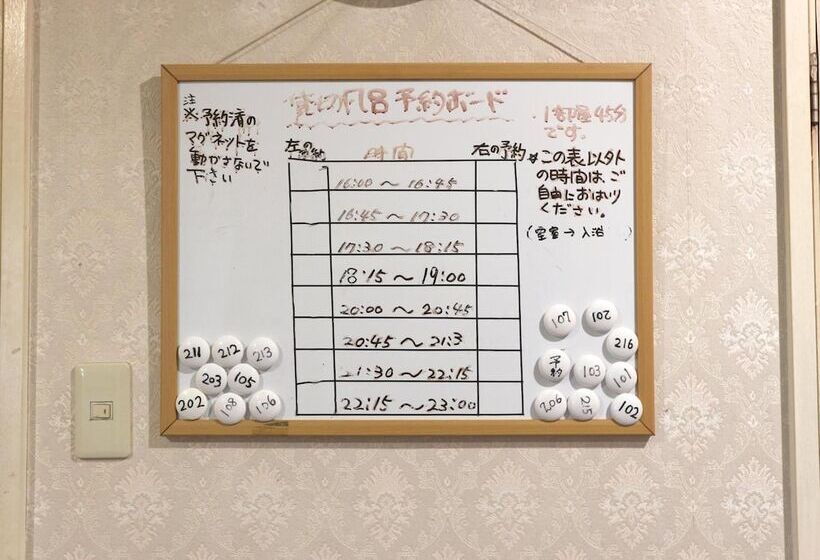 貸切風呂予約ボード
注
※予約済の
マグネットを
動かさないで
下さい
1部屋45分
です。
左の予約
時間
右の予約
※この表以外
の時間は、ご
自由におはいり
ください。
(空室→入浴 )
16:00 ~ 16:45
16:45 ~ 17:30
17:30 ~ 18:15
18:15 ~ 19:00
20:00 ~ 20:45
20:45 ~ 21:3
21:30 ~ 22:15
22:15 ~ 23:00
211
212
213
203
105
202
108
106
107
102
216
予約
103
101
206
215
102